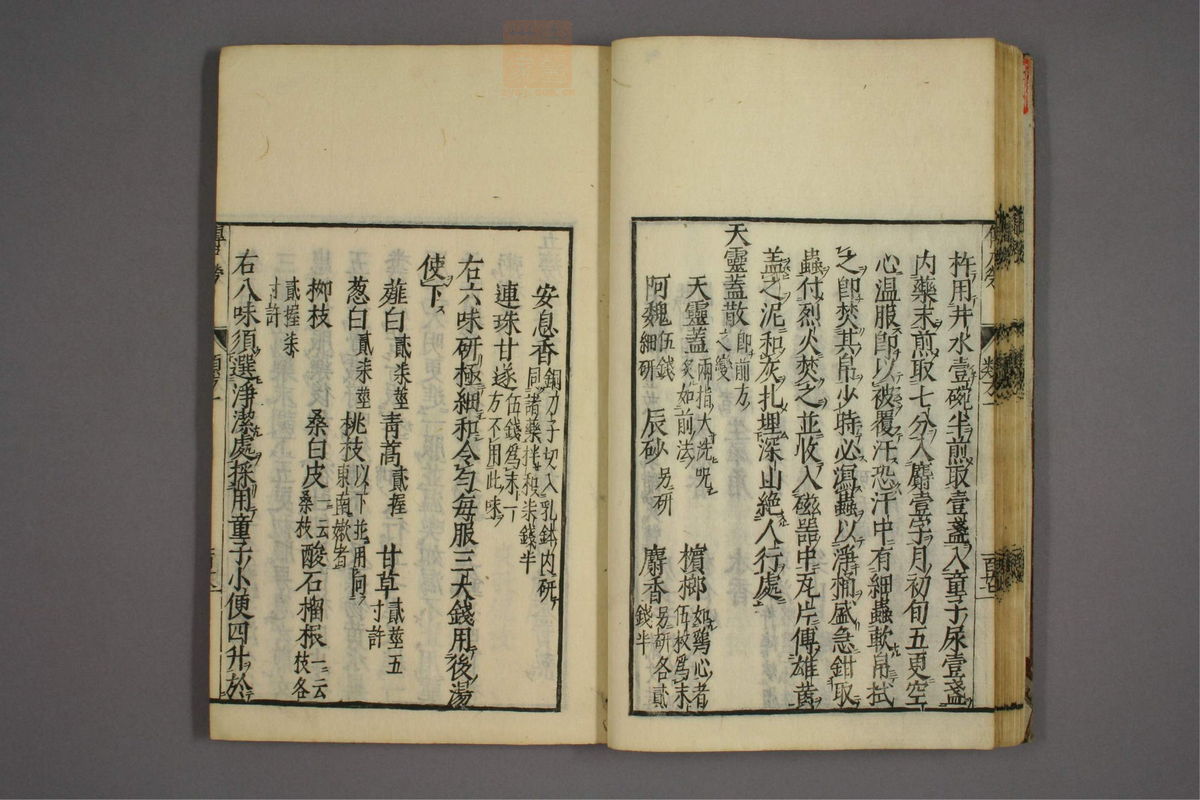 杵用井水壹碗半煎取壹盞入童子尿壹盞
内藥末煎取七分入麝壹字月初旬五更空
心温服卽以被覆汗恐汗中有細蟲軟帛拭
之卽焚其帛少時必瀉蟲以淨桶盛急鉗取
蟲付烈火焚之並收入磁噐中瓦片傅雄黃
蓋之泥和灰扎埋深山絶人行處
天靈蓋散卽前方之變
天靈蓋兩指大洗呪炙如前法 檳榔如鷄心者伍枚爲末
阿魏伍錢細研 辰砂另研 麝香另研各貳錢半
安息香銅刀子切入乳鉢内研同諸藥拌和柒錢半
連珠甘遂伍錢爲末一方不用此味
右六味研極細和令勻每服三大錢用後湯
使下
薤白貳柒莖 青蒿貳握 甘草貳莖五寸許
葱白貳柒莖 桃枝以下並用向東南嫩者
柳枝貳握柒寸許 桑白皮一云桑枝 酸石榴根一云枝各
右八味須選淨潔處採用童子小便四升於